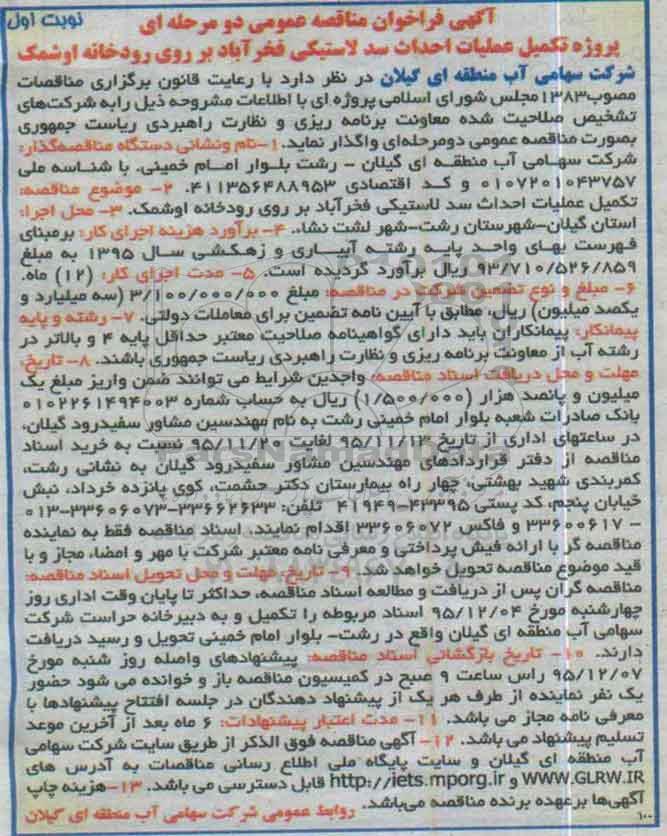 نوبت اول
آگهی فراخوان مناقصه عمومی دو مرحله ای
پروژه تکمیل عملیات احداث سد لاستیکی فخرآباد بر روی رودخانه اوشمک
شرکت سهامی آب منطقه ای گیلان در نظر دارد با رعایت قانون برگزاری مناقصات
مصوب۱۳۸۳مجلس شورای اسلامی پروژه ای با اطلاعات مشروحه ذیل رابه شرکت‌های
تشخیص صلاحیت شده معاونت برنامه ریزی و نظارت راهبردی ریاست جمهوری
بصورت مناقصه عمومی دومرحله‌ای واگذار نماید.۱-نام ونشانی دستگاه مناقصه‌گذار:
شرکت سهامی آب منطقه ای گیلان - رشت بلوار امام خمینی. با شناسه ملی
۰۱۰۷۲۰۱۰۴۳۷۵۷ و کد اقتصادی ۴۱۱۳۵۶۴۸۸۹۵۳. ۲- موضوع مناقصه:
تکمیل عملیات احداث سد لاستیکی فخرآباد بر روی رودخانه اوشمک. ۳- محل اجرا:
استان گیلان-شهرستان رشت-شهر لشت نشاء. ۴- برآورد هزینه اجرای کار: برمبنای
فهرست بهای واحد پایه رشته آبیاری و زهکشی سال ۱۳۹۵ به مبلغ
۹۳/۷۱۰/۵۲۶/۸۵۹ ریال برآورد گردیده است. ۵- مدت اجرای کار: (۱۲) ماه.
۶- مبلغ و نوع تضمین شرکت در مناقصه: مبلغ ۳/۱۰۰/۰۰۰/۰۰۰ (سه میلیارد و
یکصد میلیون) ریال، مطابق با آیین نامه تضمین برای معاملات دولتی. ۷- رشته و پایه
پیمانکار: پیمانکاران باید دارای گواهینامه صلاحیت معتبر حداقل پایه ۴ و بالاتر در
رشته آب از معاونت برنامه ریزی و نظارت راهبردی ریاست جمهوری باشند. ۸- تاریخ،
مهلت و محل دریافت اسناد مناقصه: واجدین شرایط می توانند ضمن واریز مبلغ یک
میلیون و پانصد هزار (۱/۵۰۰/۰۰۰) ریال به حساب شماره ۰۱۰۲۲۶۱۴۹۴۰۰۳
بانک صادرات شعبه بلوار امام خمینی رشت به نام مهندسین مشاور سفیدرود گیلان،
در ساعتهای اداری از تاریخ ۹۵/۱۱/۱۲ لغایت ۹۵/۱۱/۲۰ نسبت به خرید اسناد
مناقصه از دفتر قراردادهای مهندسین مشاور سفیدرود گیلان به نشانی رشت،
کمربندی شهید بهشتی، چهار راه بیمارستان دکتر حشمت، کوی پانزده خرداد، نبش
خیابان پنجم، کد پستی ۴۳۳۹۵-۴۱۹۴۹ تلفن: ۳۳۶۶۲۶۳۳-۳۳۶۰۶۰۷۳-۰۱۳
- ۳۳۶۰۰۶۱۷ و فاکس ۳۳۶۰۶۰۷۲ اقدام نمایند. اسناد مناقصه فقط به نماینده
مناقصه گر با ارائه فیش پرداختی و معرفی نامه معتبر شرکت با مهر و امضاء مجاز و با
قید موضوع مناقصه تحویل خواهد شد ۹- تاریخ، مهلت و محل تحویل اسناد مناقصه:
مناقصه گران پس از دریافت و مطالعه اسناد مناقصه، حداکثر تا پایان وقت اداری روز
چهارشنبه مورخ ۹۵/۱۲/۰۴ اسناد مربوطه را تکمیل و به دبیرخانه حراست شرکت
سهامی آب منطقه ای گیلان واقع در رشت- بلوار امام خمینی تحویل و رسید دریافت
دارند. ۱۰- تاریخ بازگشائی اسناد مناقصه: پیشنهادهای واصله روز شنبه مورخ
۹۵/۱۲/۰۷ راس ساعت ۹ صبح در کمیسیون مناقصه باز و خوانده می شود حضور
یک نفر نماینده از طرف هر یک از پیشنهاد دهندگان در جلسه افتتاح پیشنهادها با
معرفی نامه مجاز می باشد. ۱۱- مدت اعتبار پیشنهادات: ۶ ماه بعد از آخرین موعد
تسلیم پیشنهاد می باشد. ۱۲- آگهی مناقصه فوق الذکر از طریق سایت شرکت سهامی
آب منطقه ای گیلان و سایت پایگاه ملی اطلاع رسانی مناقصات به آدرس های
WWW.GLRW.IR و http://iets.mporg.ir قابل دسترسی می باشد. ۱۳-هزینه چاپ
آگهی‌ها برعهده برنده مناقصه می‌باشد.
روابط عمومی شرکت سهامی آب منطقه ای گیلان